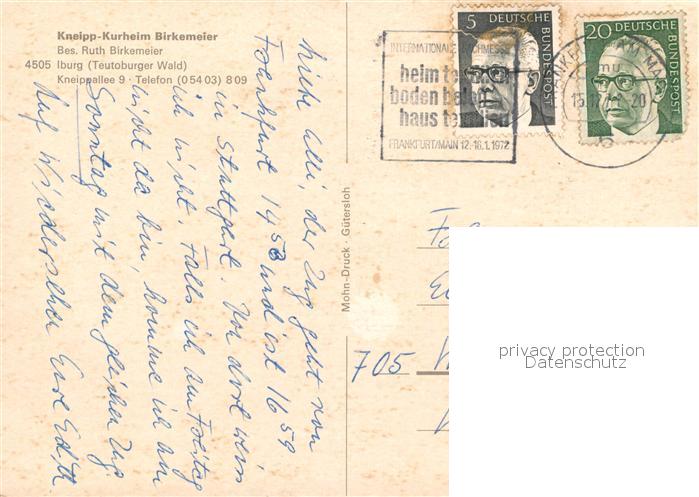 Kneipp-Kurheim Birkemeier
Bes. Ruth Birkemeier
4505 Iburg (Teutoburger Wald)
Kneippallee 9 · Telefon (0 54 03) 8 09
Liebe Elli, der Zug geht von
Frankfurt 14 58 und ist 16 59
in Stuttgart. Von dort weiss
ich nicht. Falls ich am Freitag
nicht da bin, komme ich am
Sonntag mit dem gleichen Zug.
Auf Wiedersehen Eure Edith
Mohn-Druck · Gütersloh
INTERNATIONALE FACHMESSE
heim
boden
haus
FRANKFURT/MAIN 12.-16.1.1972
5 DEUTSCHE
BUNDESPOST
20 DEUTSCHE
BUNDESPOST
705
privacy protection
Datenschutz